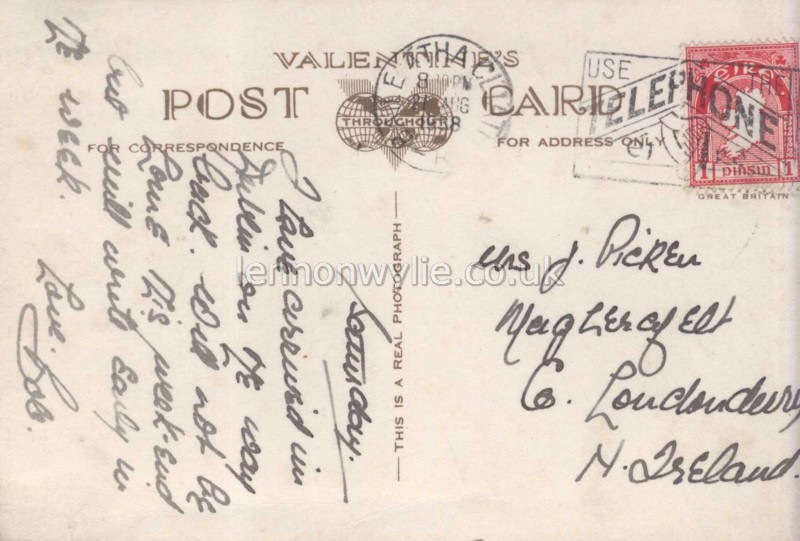 VALENTINE'S
POST CARD
THROUGHOUT
FOR CORRESPONDENCE
FOR ADDRESS ONLY
8 10 PM
AUG
USE
THE
TELEPHONE
1 PINSIN 1
GREAT BRITAIN
THIS IS A REAL PHOTOGRAPH
Saturday.
I have arrived in
Dublin on the way
back. Will not be
home this week-end
but will write early in
the week.
Love.
Bob.
Mrs J. Picken
Magherafelt
Co. Londonderry
N. Ireland.
lennonwylie.co.uk